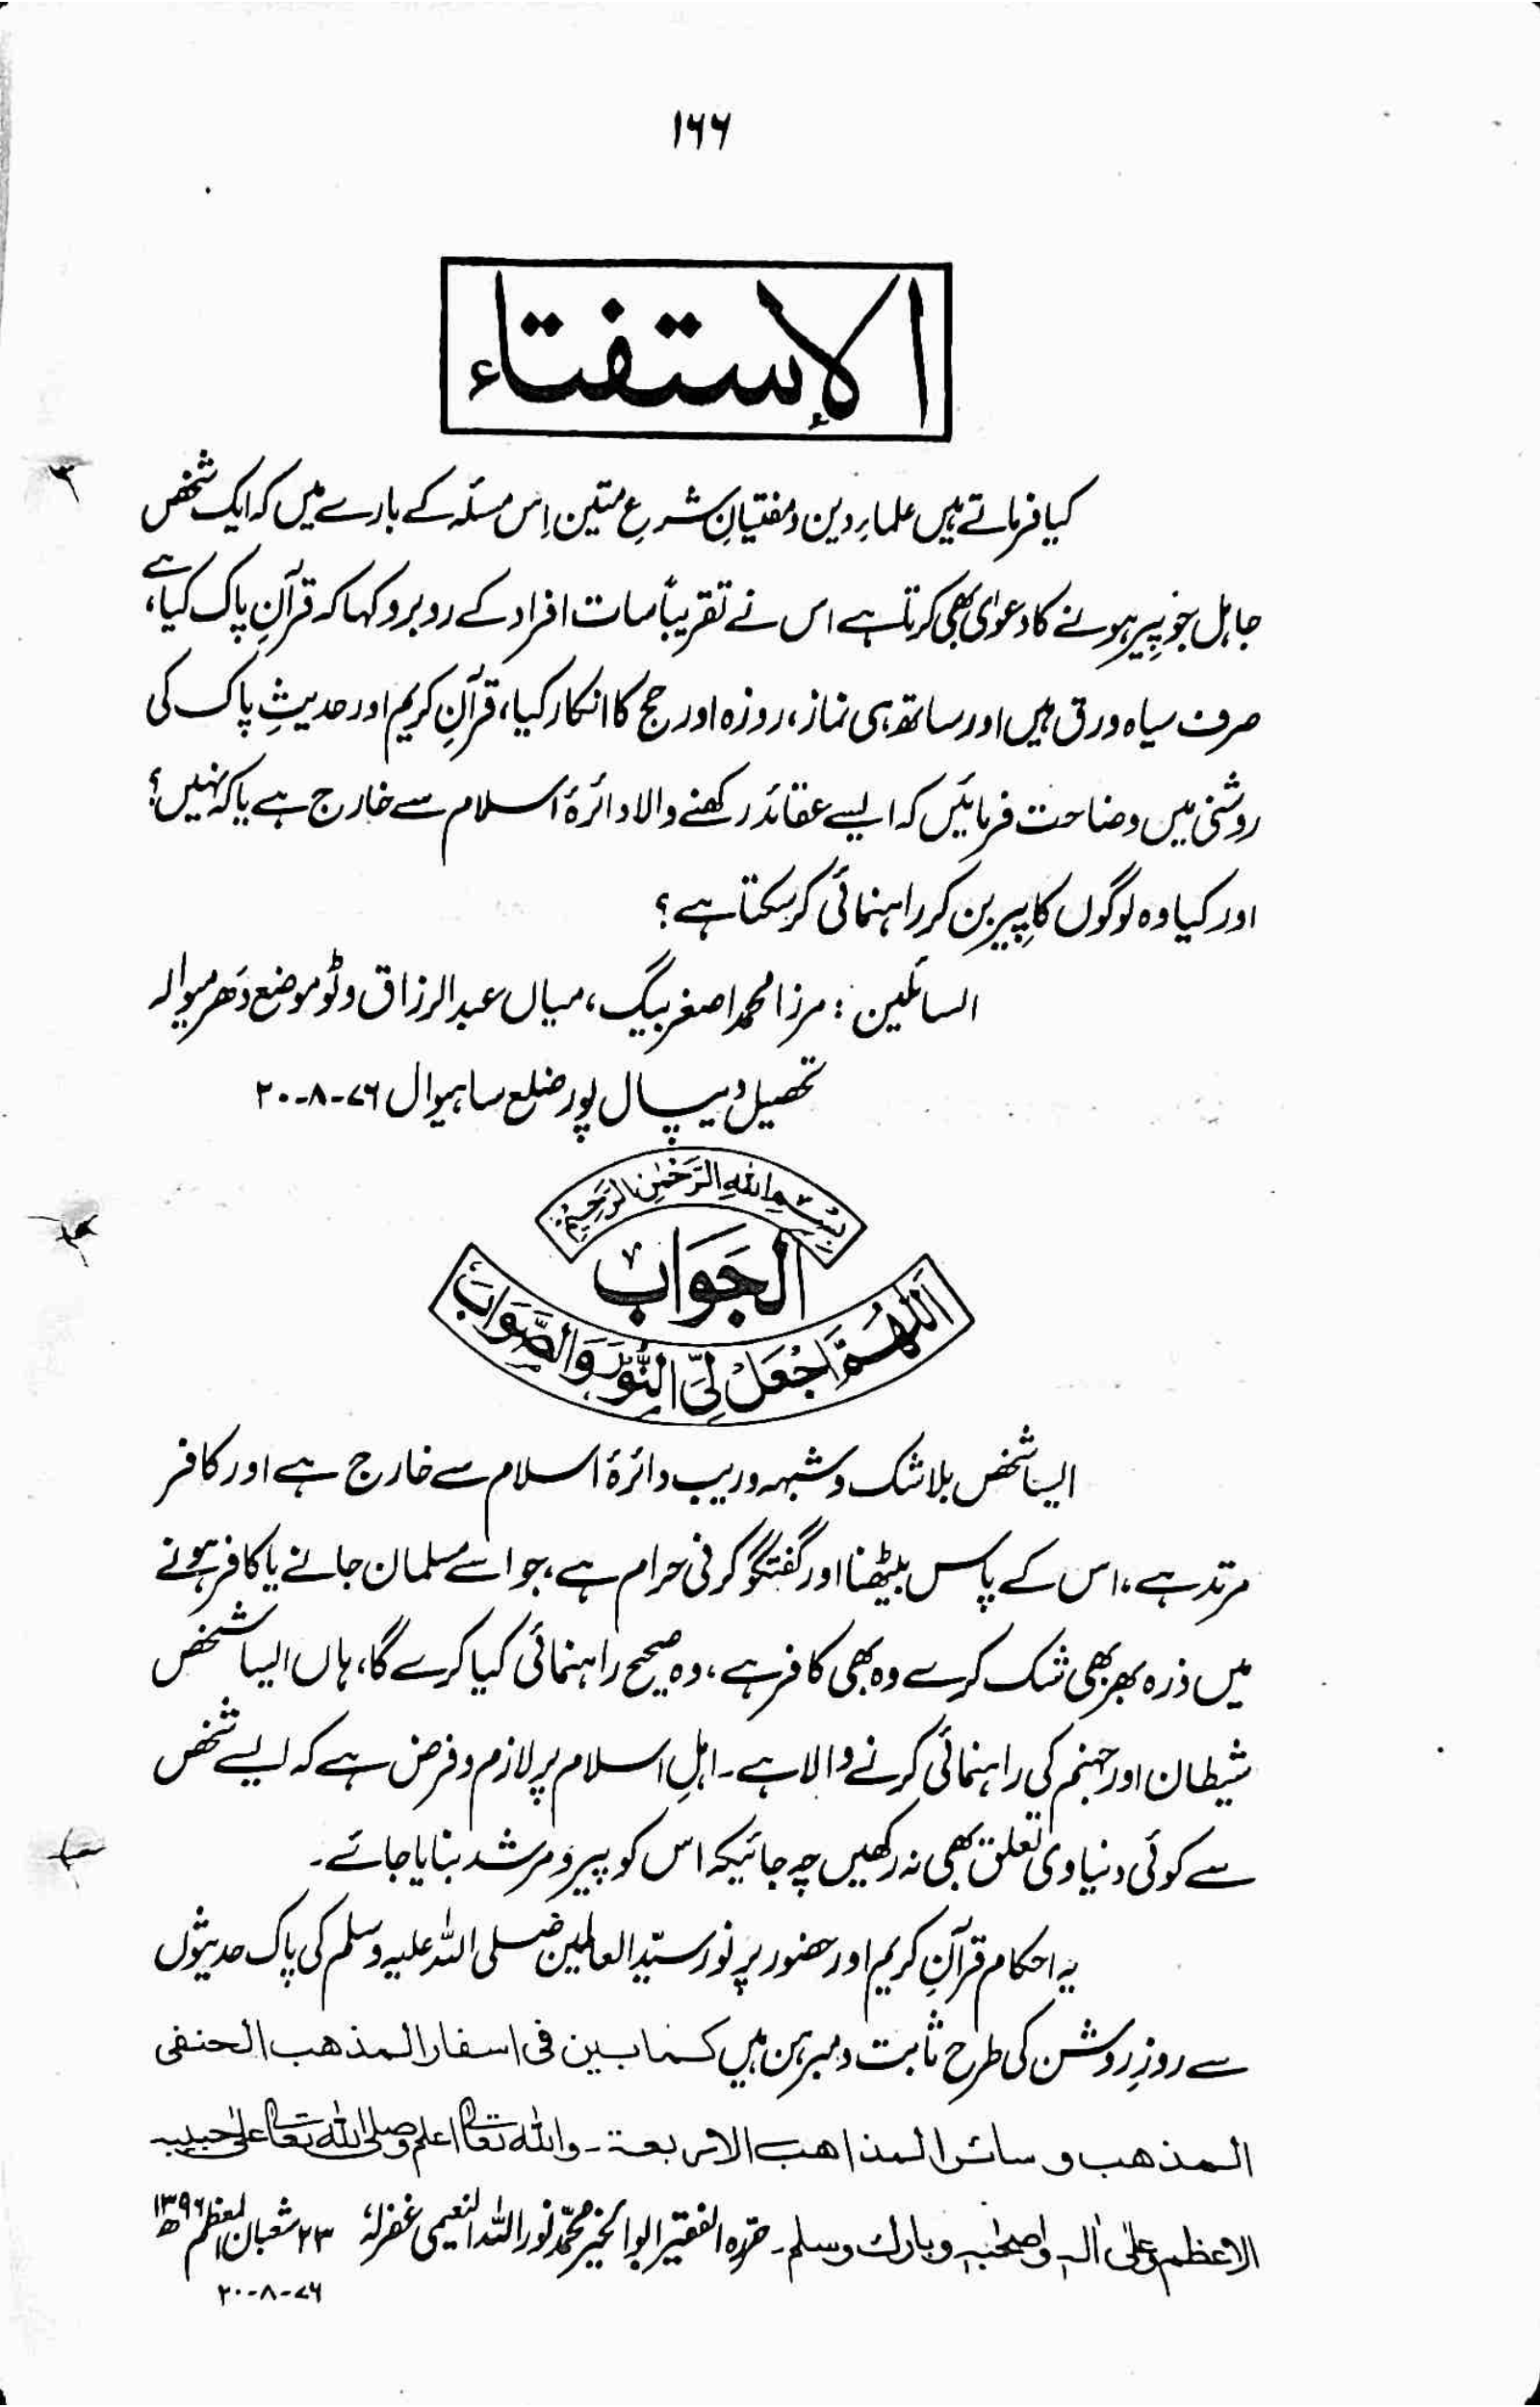 ۱۶۶
الإستفتاء
کیا فرماتے ہیں علماءِ دین و مفتیانِ شرعِ متین اِس مسئلہ کے بارے میں کہ ایک شخص
جاہل جو پیر ہونے کا دعوٰی بھی کرتا ہے اس نے تقریباً سات افراد کے روبرو کہا کہ قرآنِ پاک کیا ہے،
صرف سیاہ ورق ہیں اور ساتھ ہی نماز، روزہ اور حج کا انکار کیا، قرآنِ کریم اور حدیثِ پاک کی
روشنی میں وضاحت فرمائیں کہ ایسے عقائد رکھنے والا دائرۂ اسلام سے خارج ہے یا کہ نہیں؟
اور کیا وہ لوگوں کا پیر بن کر راہنمائی کر سکتا ہے؟
السائلین : مرزا محمد اصغر بیگ، میاں عبدالرزاق وٹو موضع دھرمیوالہ
تحصیل دیپالپور ضلع ساہیوال ۷۶-۸-۲۰
بِسْمِ اللهِ الرَّحْمٰنِ الرَّحِيْمِ
الجَوَابُ
اَللّٰهُمَّ اجْعَلْ لِيَ النُّوْرَ وَالصَّوَابَ
ایسا شخص بلا شک و شبہہ و ریب دائرۂ اسلام سے خارج ہے اور کافر
مرتد ہے، اس کے پاس بیٹھنا اور گفتگو کرنی حرام ہے، جو اسے مسلمان جانے یا کافر ہونے
میں ذرہ بھر بھی شک کرے وہ بھی کافر ہے، وہ صحیح راہنمائی کیا کرے گا، ہاں ایسا شخص
شیطان اور جہنم کی راہنمائی کرنے والا ہے۔ اہلِ اسلام پر لازم و فرض ہے کہ ایسے شخص
سے کوئی دنیاوی تعلق بھی نہ رکھیں چہ جائیکہ اس کو پیر و مرشد بنایا جائے۔
یہ احکام قرآنِ کریم اور حضور پر نور سیّد العالمین صلی اللہ علیہ وسلم کی پاک حدیثوں
سے روزِ روشن کی طرح ثابت و مبرہن ہیں کما بین فی اسفار المذهب الحنفی
المذهب و سائر المذاهب الاربعة۔ والله تعالٰی اعلم وصلی الله تعالٰی علٰی حبیبه
الاعظم وعلٰی اٰله واصحٰبه وبارك وسلم۔ حررہ الفقیر ابوالخیر محمد نور اللہ النعیمی غفرلہ ۲۳ شعبان المعظم ۱۳۹۶ھ
۷۶-۸-۲۰